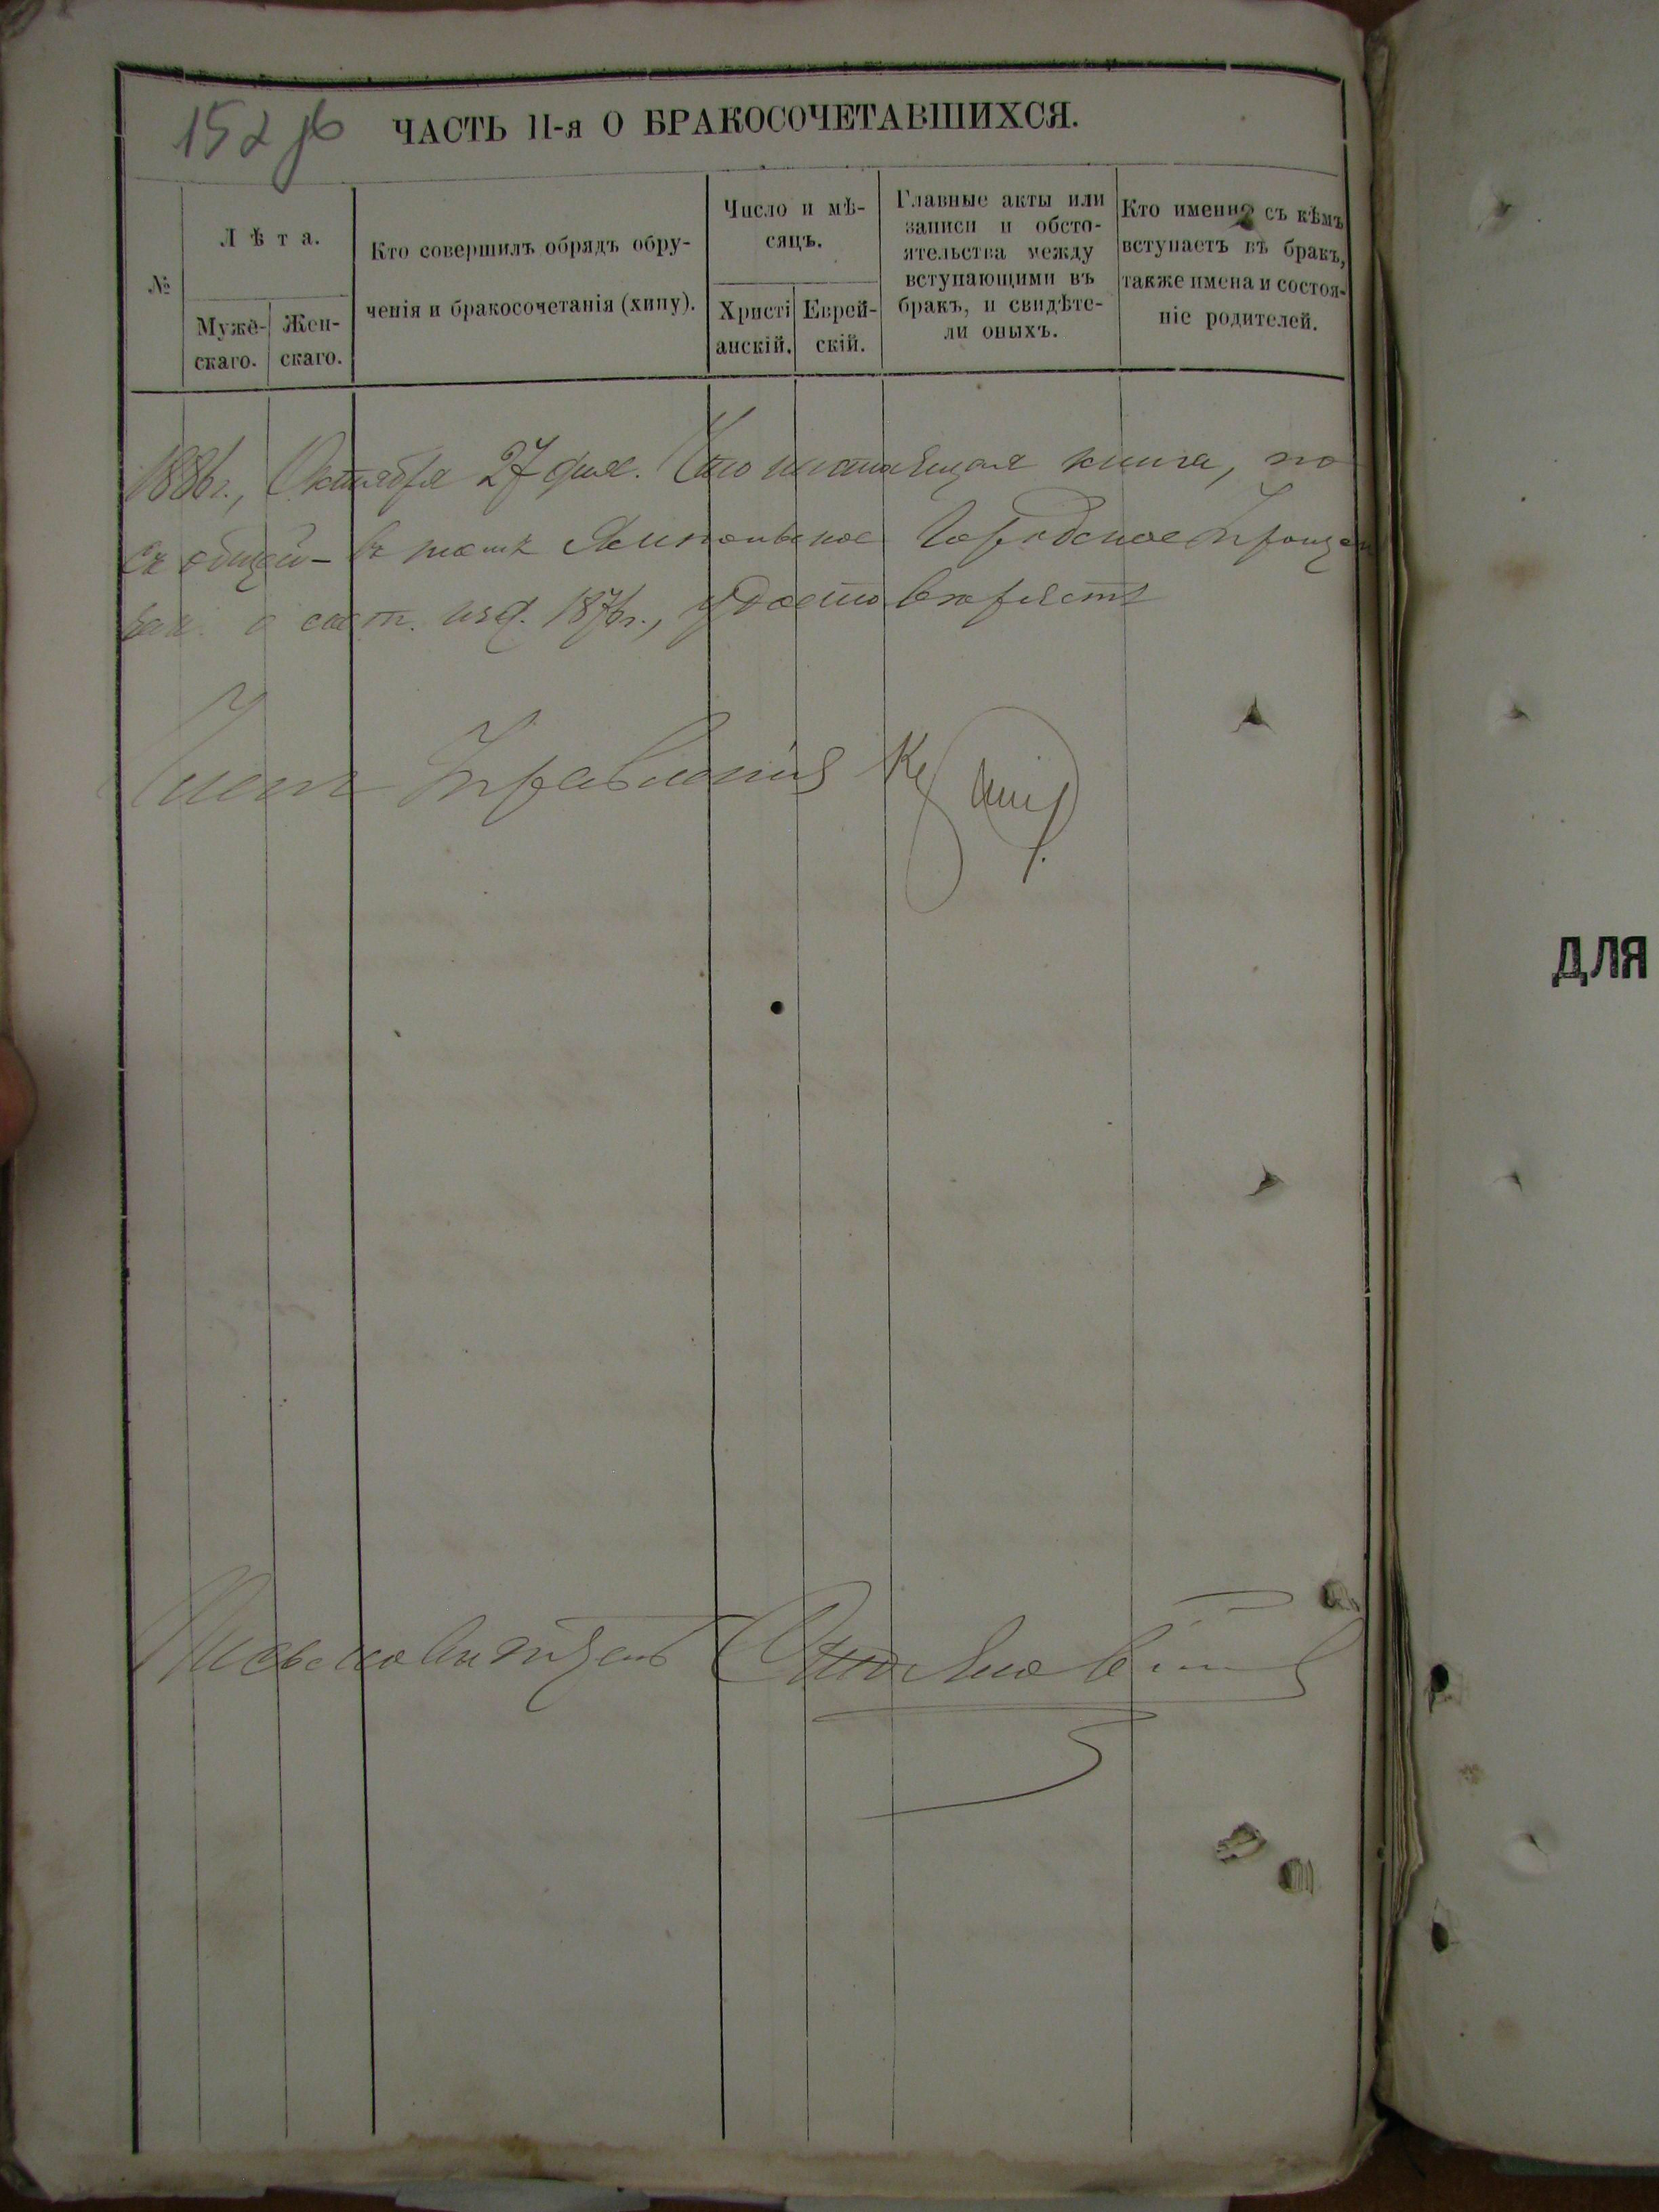 152 об
ЧАСТЬ II-я О БРАКОСОЧЕТАВШИХСЯ.
№
Лѣта.
Муже-
скаго.
Жен-
скаго.
Кто совершилъ обрядъ обру-
ченія и бракосочетанія (хипу).
Число и мѣ-
сяцъ.
Христі
анскій.
Еврей-
скій.
Главные акты или
записи и обсто-
ятельства между
вступающими въ
бракъ, и свидѣте-
ли оныхъ.
Кто именно съ кѣмъ
вступаетъ въ бракъ,
также имена и состоя-
ніе родителей.
1886г., Октября 27 дня. Что настоящая книга, по
въ томъ Ямпольское Городское
зак. о сост. изд. 1876г., удостовѣряетъ
Членъ Управленія
Письмоводитель
ДЛЯ